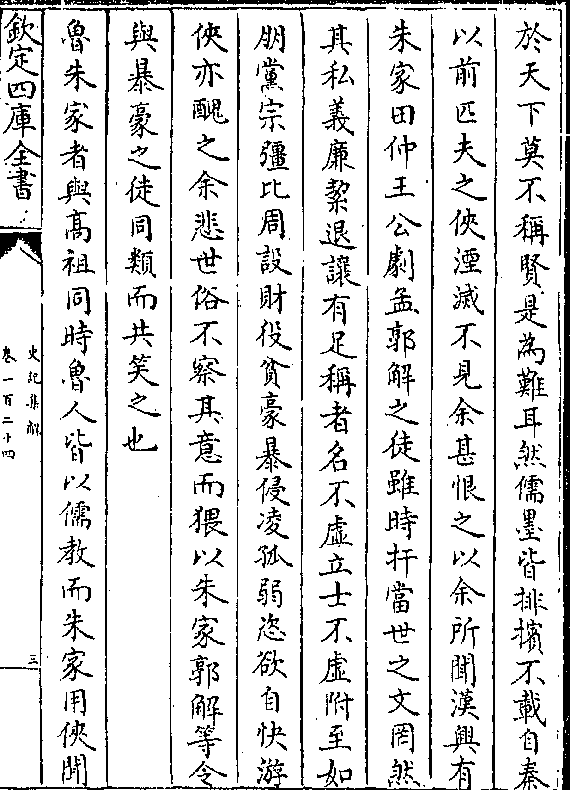 於天下莫不稱賢是為難耳然儒墨皆排擯不載自秦
以前匹夫之俠湮滅不見余甚恨之以余所聞漢興有
朱家田仲王公劇孟郭解之徒雖時扞當世之文罔然
其私義廉絜退讓有足稱者名不虛立士不虛附至如
朋黨宗彊比周設財役貧豪暴侵凌孤弱恣欲自快游
俠亦醜之余悲世俗不察其意而猥以朱家郭解等令
與暴豪之徒同類而共笑之也
魯朱家者與髙祖同時魯人皆以儒教而朱家用俠聞
欽定四庫全書
史記集解
卷一百二十四
三